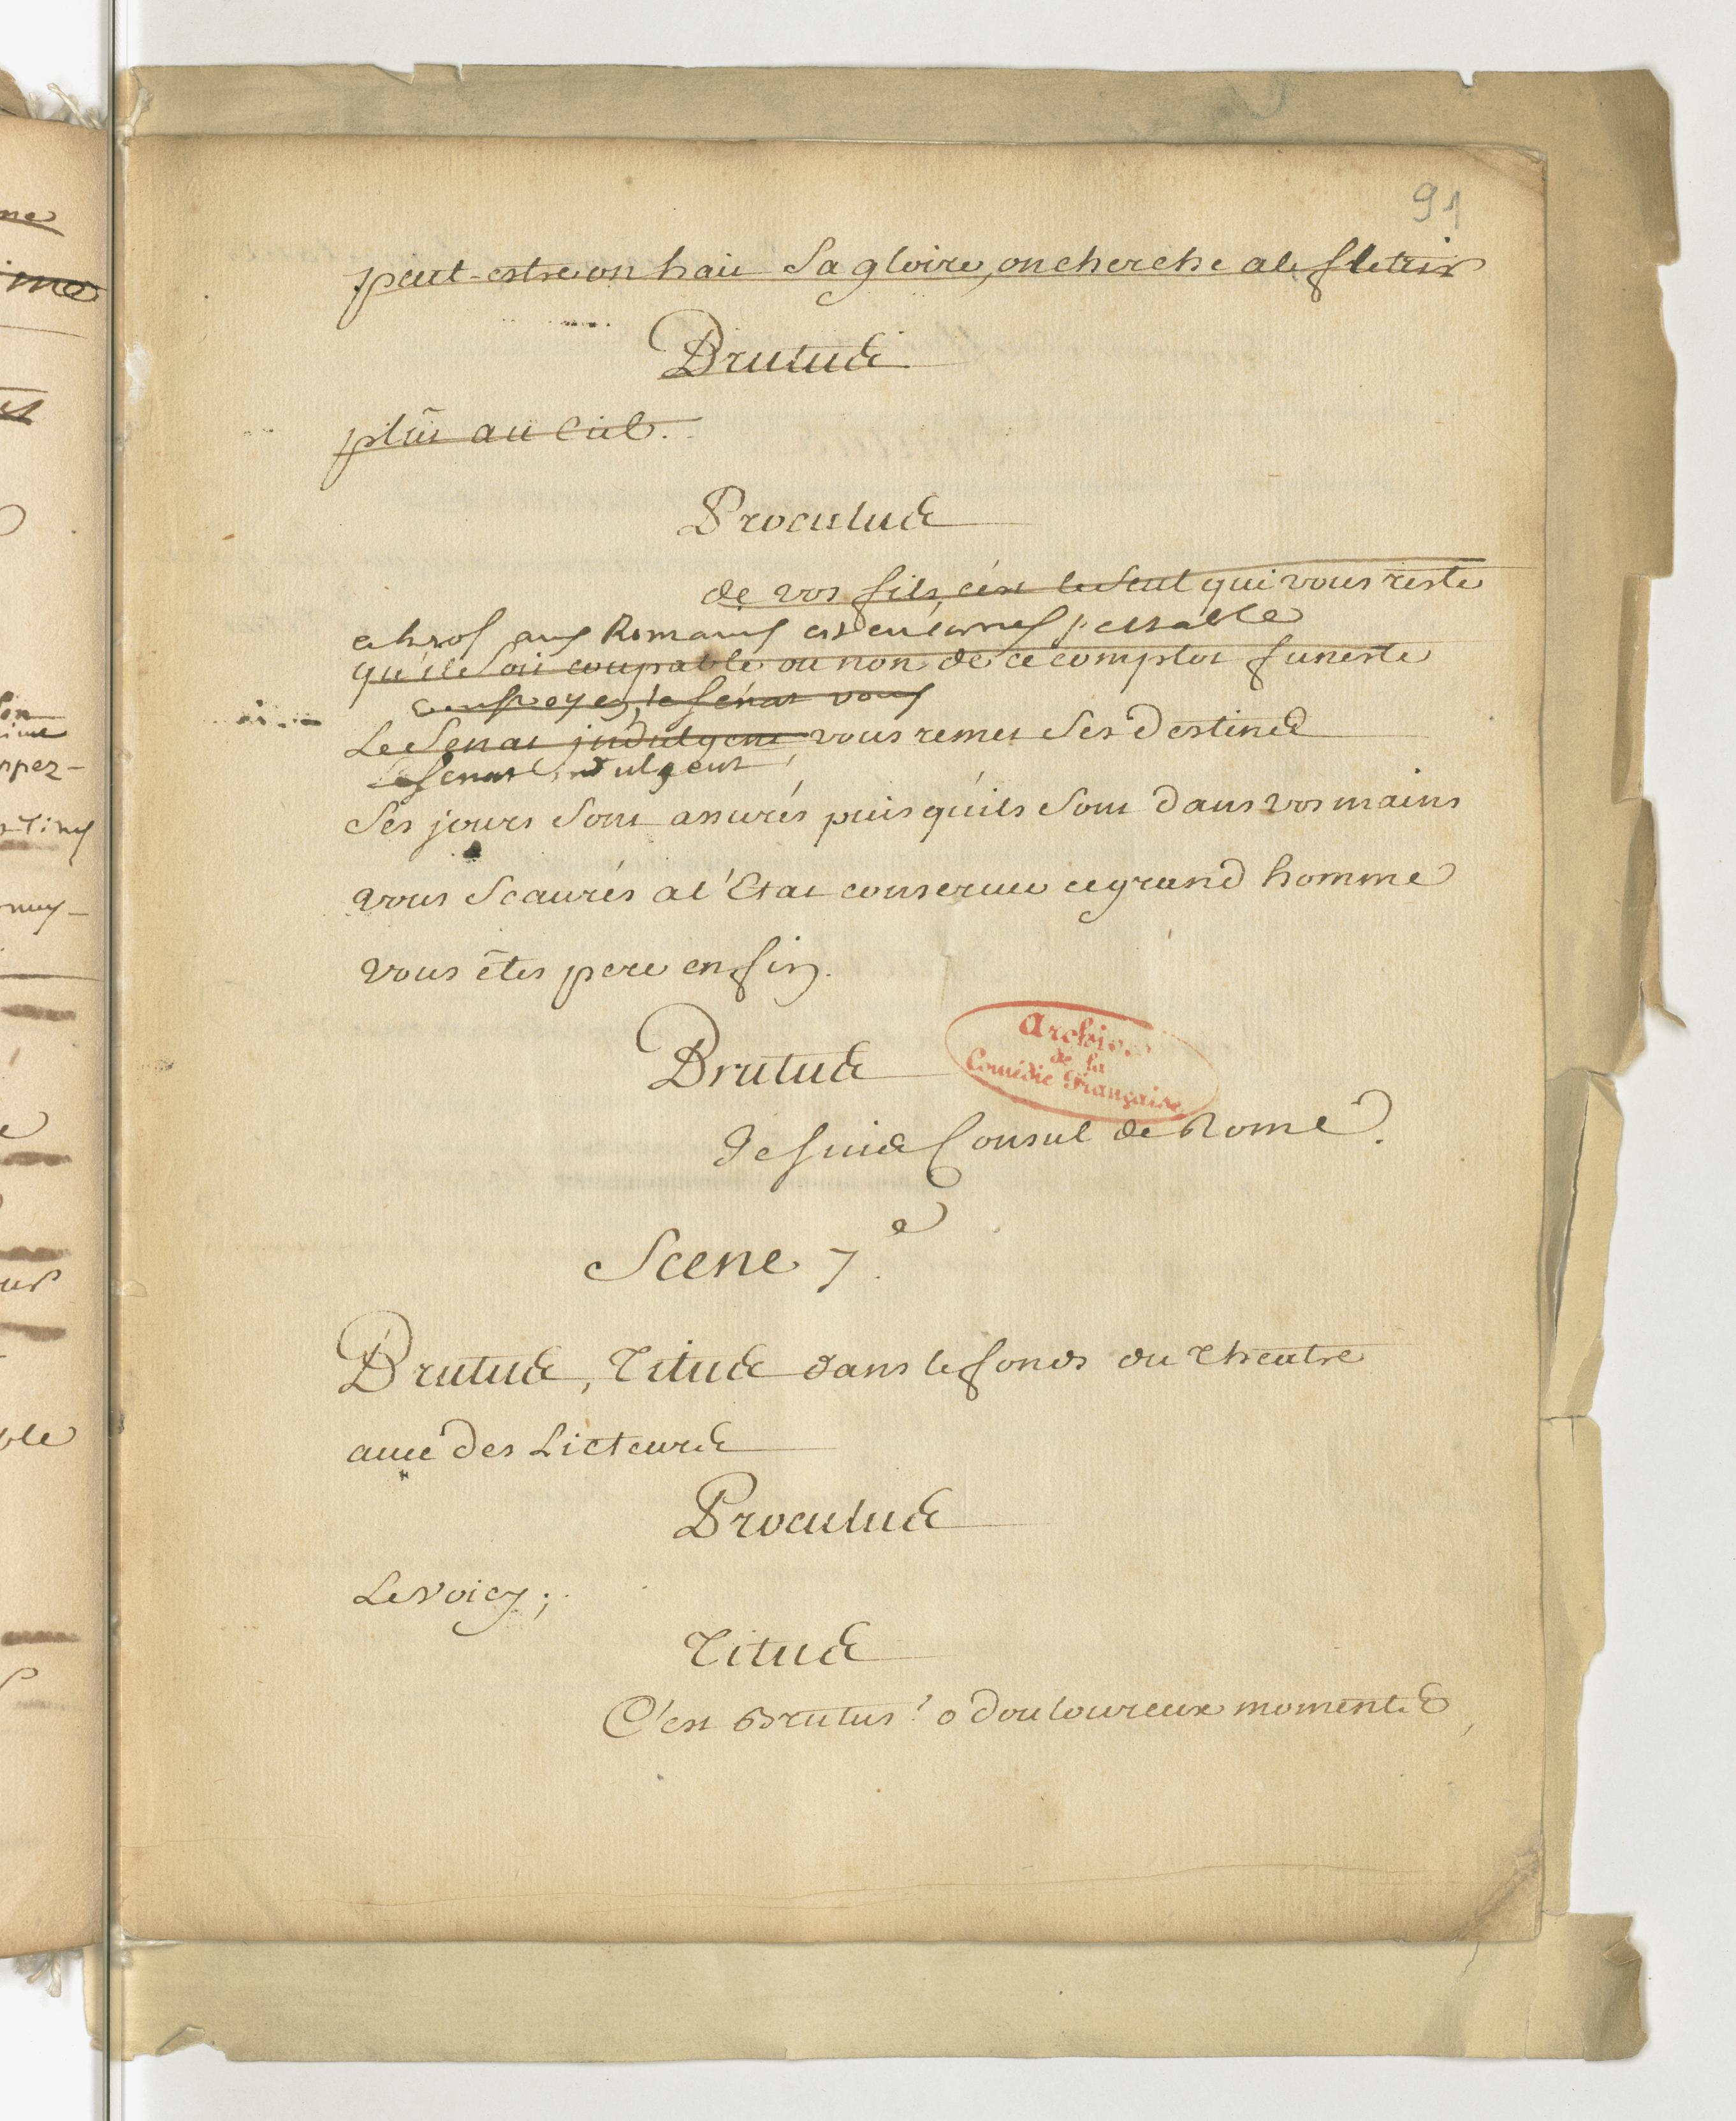 91
peut-estre on hait Sa gloire, on cherche a le fletrir
Brutus
plût au Ciel.
Proculus
de vos fils, c'est le Seul qui vous reste
aux Romains est encor
qu'il Soit coupable ou non de ce complot funeste
le Sénat vous
Le Senat indulgent vous remet Ses Destins
le Senat indulgent
Ses jours Sont assurés puis qu'ils Sont Dans vos mains
vous Scaurés a l'Etat conserver ce grand homme
vous êtes pere enfin.
Brutus
Archives
de la
Comédie Française
Je suis Consul de Rome.
Scene 7e.
Brutus, Titus dans le fonds du theatre
avec Des Licteurs
Proculus
Le Voicy;
Titus
C'est Brutus! o Douloureux moments